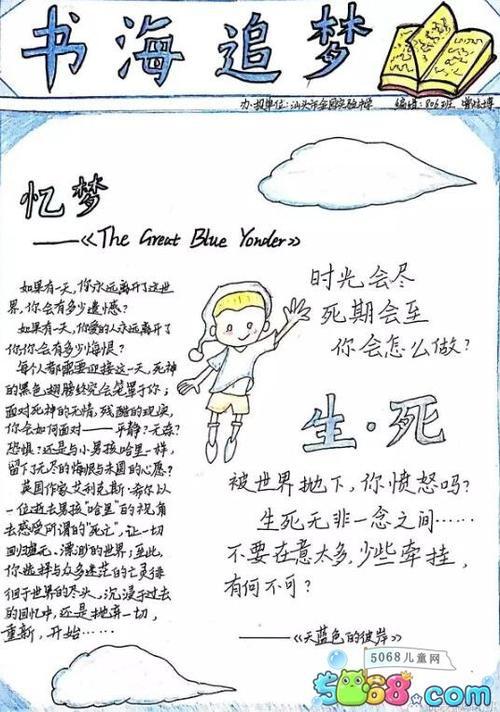 书海追梦
办报单位：汕头市金园实验中学 编辑：806班
忆梦
——《The Great Blue Yonder》
如果有一天，你永远离开了这世
界，你会有多少遗憾？
如果有一天，你爱的人永远离开了
你你会有多少悔恨？
每个人都需要迎接这一天，死神
的黑色翅膀终究会笼罩于你；
面对死神的无情，残酷的现实，
你会如何面对——平静？无奈？
恐惧？还是与小男孩哈里一样，
留下了无尽的悔恨与未圆的心愿？
英国作家艾利克斯·希尔以
一位逝去男孩"哈里"的视角
去感受所谓的"死亡"，让一切
回归虚无、漂渺的世界；至此，
你选择与众多迷茫的亡灵徘
徊于世界的尽头，沉浸于过去
的回忆中，还是抛弃一切，
重新，开始……
时光会尽
死期会至
你会怎么做？
生·死
被世界抛下，你愤怒吗？
生死无非一念之间……
不要在意太多，少些牵挂，
有何不可？
——《天蓝色的彼岸》
5068儿童网
5068.com